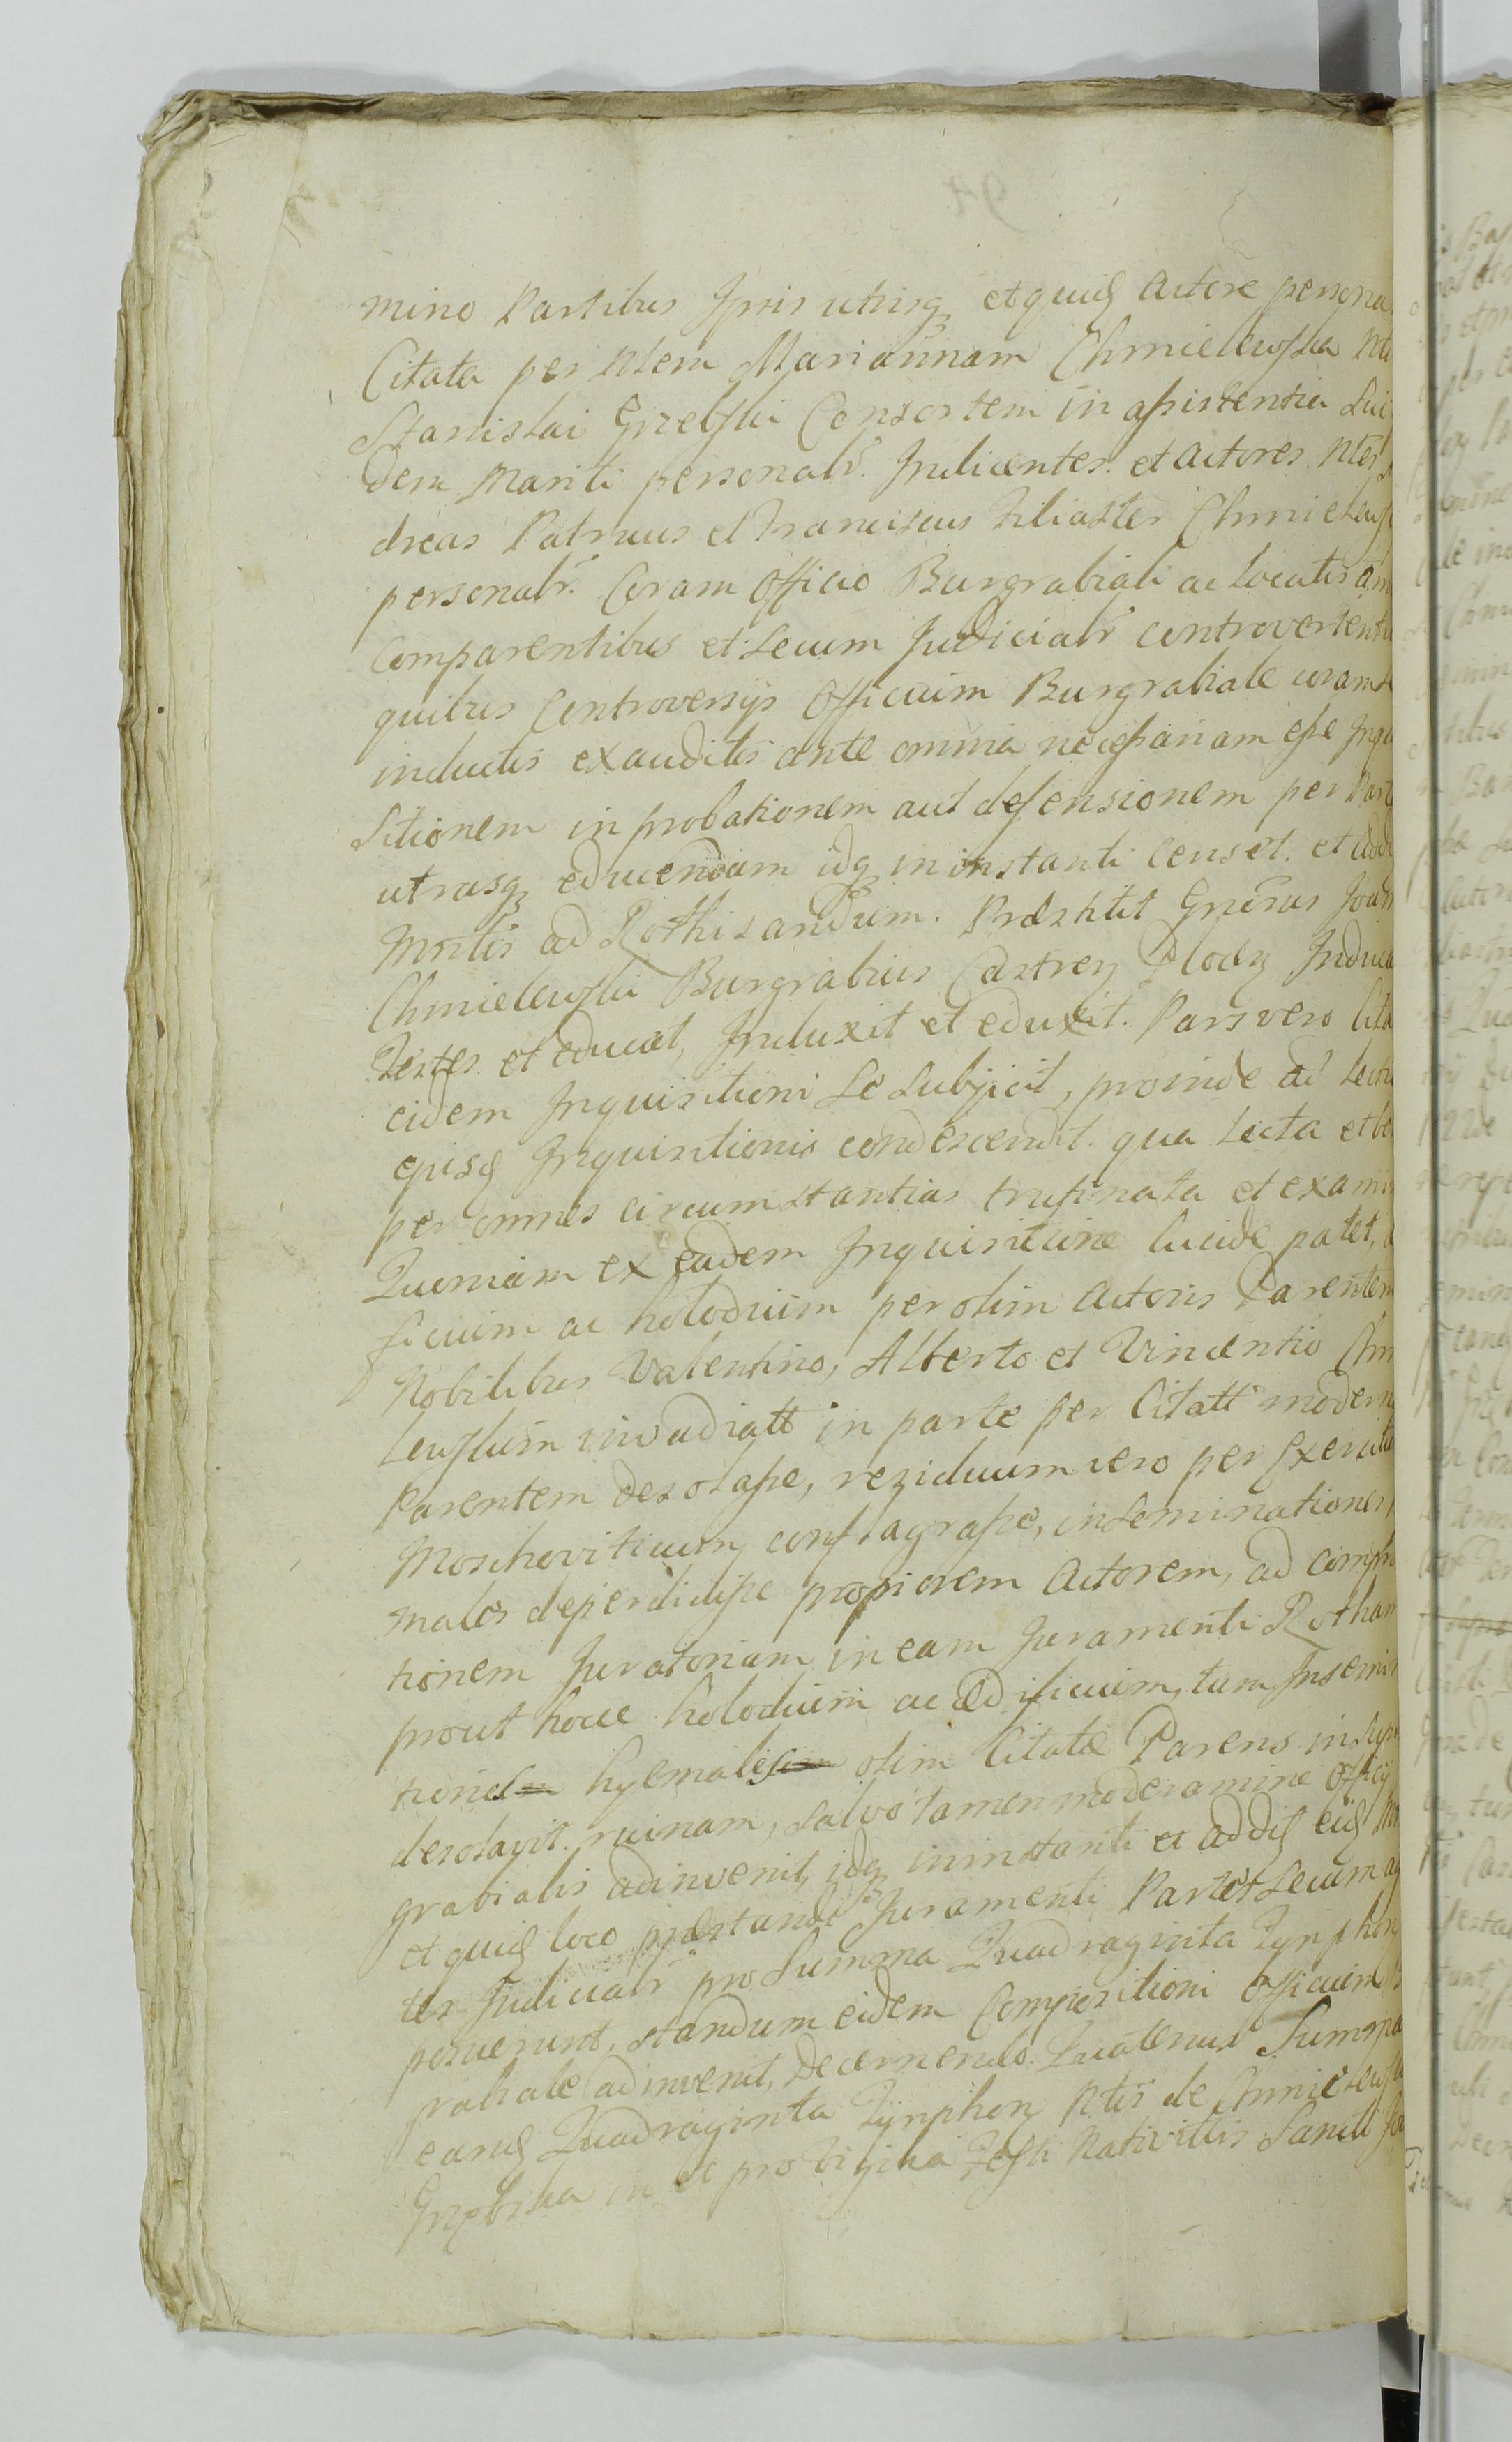 mino Partibus Ipsis utrisq; et quidē Actore persona
Citata per Nlem Mariannam Chmielewska Nli
Stanislai Grzelski Consortem in assistentia sui
dem Mariti personalr̄. Judicantes. et Actores Nles
dreas Patruus et Franciscus Filiaster Chmielews
personalr̄. Coram Officio Burgrabiali ac locatis
Comparentibus et Secum Judicialr̄ controvertenti
quibus Controversys Officium Burgrabiale coram
inductis exauditis ante omnia necessariam esse Inqui
sitionem in probationem aut defensionem per Part
utrasq; educendam idq; in instanti censet. et
ad Rothisandum. Præstitit Gnrosus Joan
Chmielewski Burgrabius Castren Plocen
Testes et educat, Induxit et eduxit. Pars vero Cita
eidem Inquisitioni Se Subjicit, proinde ad lectu
ejusd Inquisitionis condescendit. qua lecta et be
per omnes circumstantias trutinata et exami
Quoniam ex eadem Inquisitione lucide patet,
ficium ac holodium per olim Actoris Parentem
Nobilibus Valentino, Alberto et Vincentio Chm
lewskim invadiatt in parte per Citatt modern
Parentem desolasse, reziduum vero per Exercitu
Moschoviticum conflagrasse, inseminationes
males deperdidisse propiorem Actorem, ad comp
tionem Juratoriam in eam Juramenti Rotham
prout hocce holodium ac ædificium, tam Insemin
tiones hyemales olim Citatæ Parens in
desolavit ruinam, salvo tamen moderamine Officÿ
grabialis adinvenit, idq; in instanti et addiē eiusd
et quidē loco præstandi Juramenti Partes Secum
ter Judicialr̄ pro Summa Quadraginta Tynphon
posuerunt, standum eidem Compositioni Officium
grabiale adinvenit, Decernendo. Quatenus Summa
eand Quadraginta Tynphon Nlis de Chmielews
Grzelska in et pro vigilia Festi Nativittis Sancti